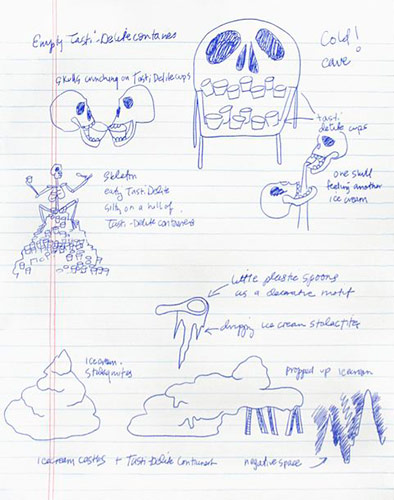 Empty Tasti-Delite containers
Cold!
cave
Skulls crunching on Tasti Delite cups
tasti
delite cups
skeleton
eating Tasti Delite
sitting on a hill of
Tasti-Delite containers
one skull
feeding another
ice cream
little plastic spoons
as a decorative motif
dripping ice cream stalactites
ice cream
stalagmites
propped up ice cream
ice cream castles + Tasti Delite containers
negative space